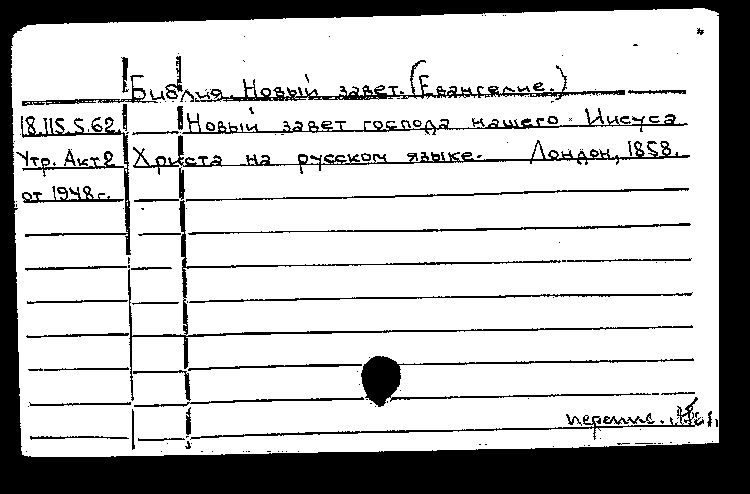 Библия. Новый завет. (Евангелие.)
18.115.5.62. Новый завет господа нашего Иисуса
Утр. Акт 2 Христа на русском языке. Лондон, 1858.
от 1948 г.
перепис.